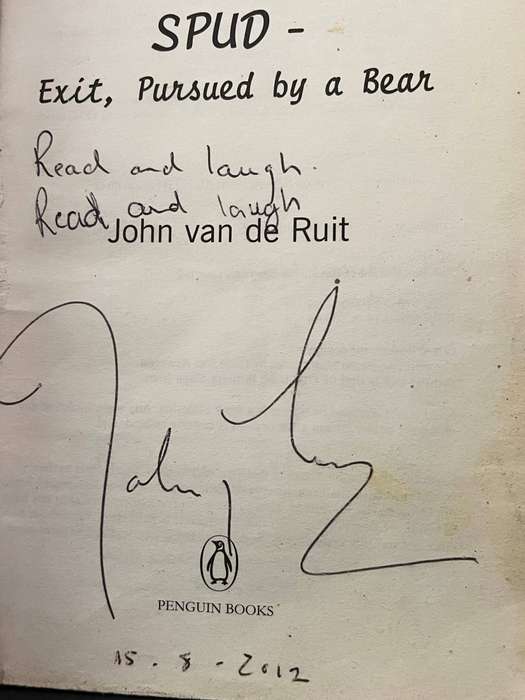 SPUD -
Exit, Pursued by a Bear
Read and laugh.
Read and laugh
John van de Ruit
PENGUIN BOOKS
15 . 8 . 2012